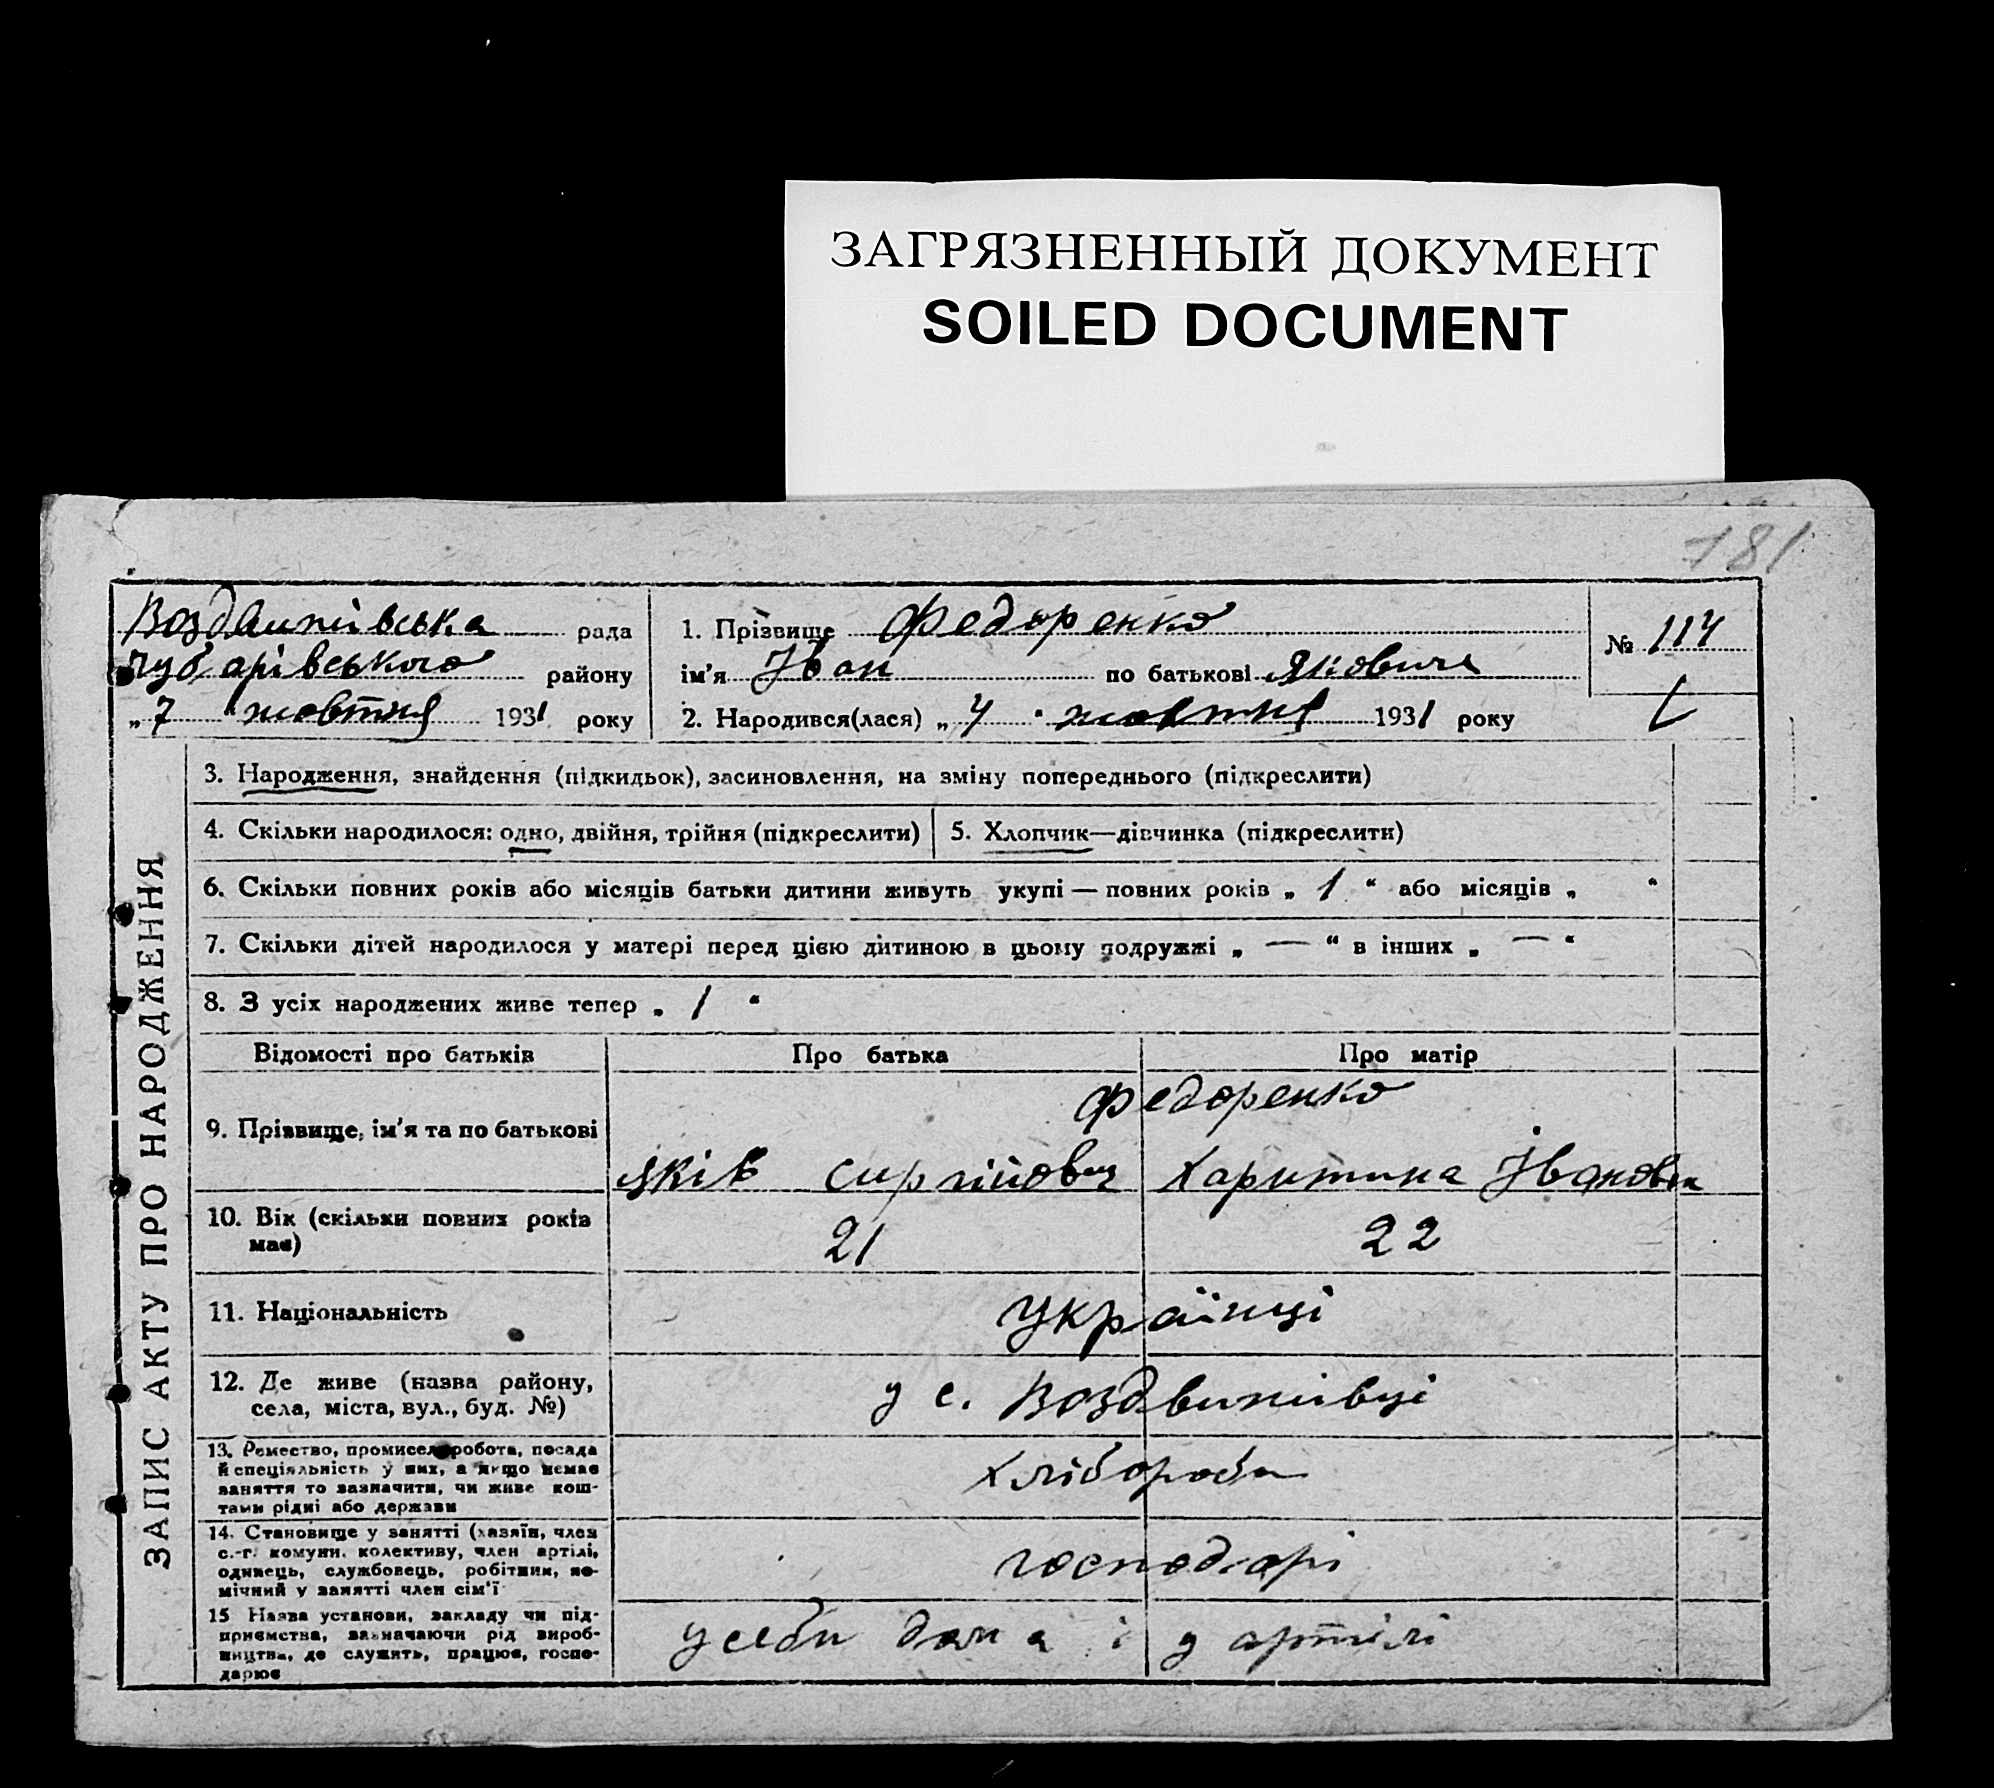 ЗАГРЯЗНЕННЫЙ ДОКУМЕНТ
SOILED DOCUMENT
181
Воздвижівська рада
Чубарівського району
„ 7 " жовтня 1931 року
1. Прізвище Федоренко
ім'я Іван по батькові Якович
2. Народився(лася) „ 4 " жовтня 1931 року
№ 114
ЗАПИС АКТУ ПРО НАРОДЖЕННЯ
3. Народження, знайдення (підкидьок), засиновлення, на зміну попереднього (підкреслити)
4. Скільки народилося: одно, двійня, трійня (підкреслити) 5. Хлопчик—дівчинка (підкреслити)
6. Скільки повних років або місяців батьки дитини живуть укупі — повних років „ 1 " або місяців „ "
7. Скільки дітей народилося у матері перед цією дитиною в цьому подружжі „ — " в інших „ — "
8. З усіх народжених живе тепер „ 1 "
Відомості про батьків Про батька Про матір
Федоренко
9. Прізвище, ім'я та по батькові
Яків Сиргійович Харитина Івановна
10. Вік (скільки повних років має) 21 22
11. Національність українці
12. Де живе (назва району,
села, міста, вул., буд. №) у с. Воздвижівці
13. Ремество, промисел, робота, посада
й спеціяльність у них, а якщо немає
заняття то зазначити, чи живе кош-
тами рідні або держави
хлібороби
14. Становище у занятті (хазяїн, член
с.-г. комуни, колективу, член артілі,
одинець, службовець, робітник, по-
мічний у занятті член сім'ї
господарі
15 Назва установи, закладу чи під-
приємства, зазначаючи рід вироб-
ництва, де служить, працює, госпо-
дарює
у себи дома і у артілі